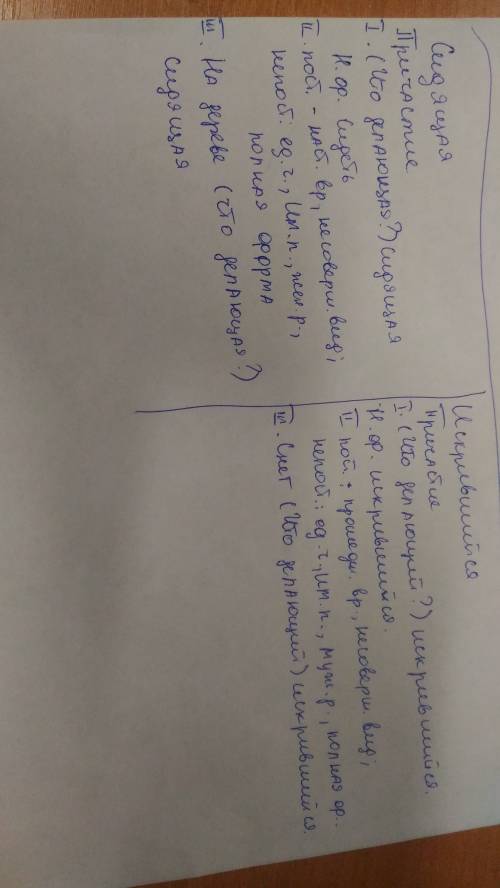 Сидящая
Причастие
I. (Что делающая?) сидящая
Н.ф. сидеть
II. пост. - наст. вр., несоверш. вид;
непост: ед.ч., Им.п., жен.р.,
полная форма
III. На дереве (что делающая?)
сидящая
Искрившийся
Причастие
I. (Что делающий?) искрившийся.
Н.ф. искрившийся.
II пост.: прошедш. вр., несоверш. вид;
непост.: ед.ч., им.п., муж.р., полная ф..
III. Снег (Что делающий) искрившийся.